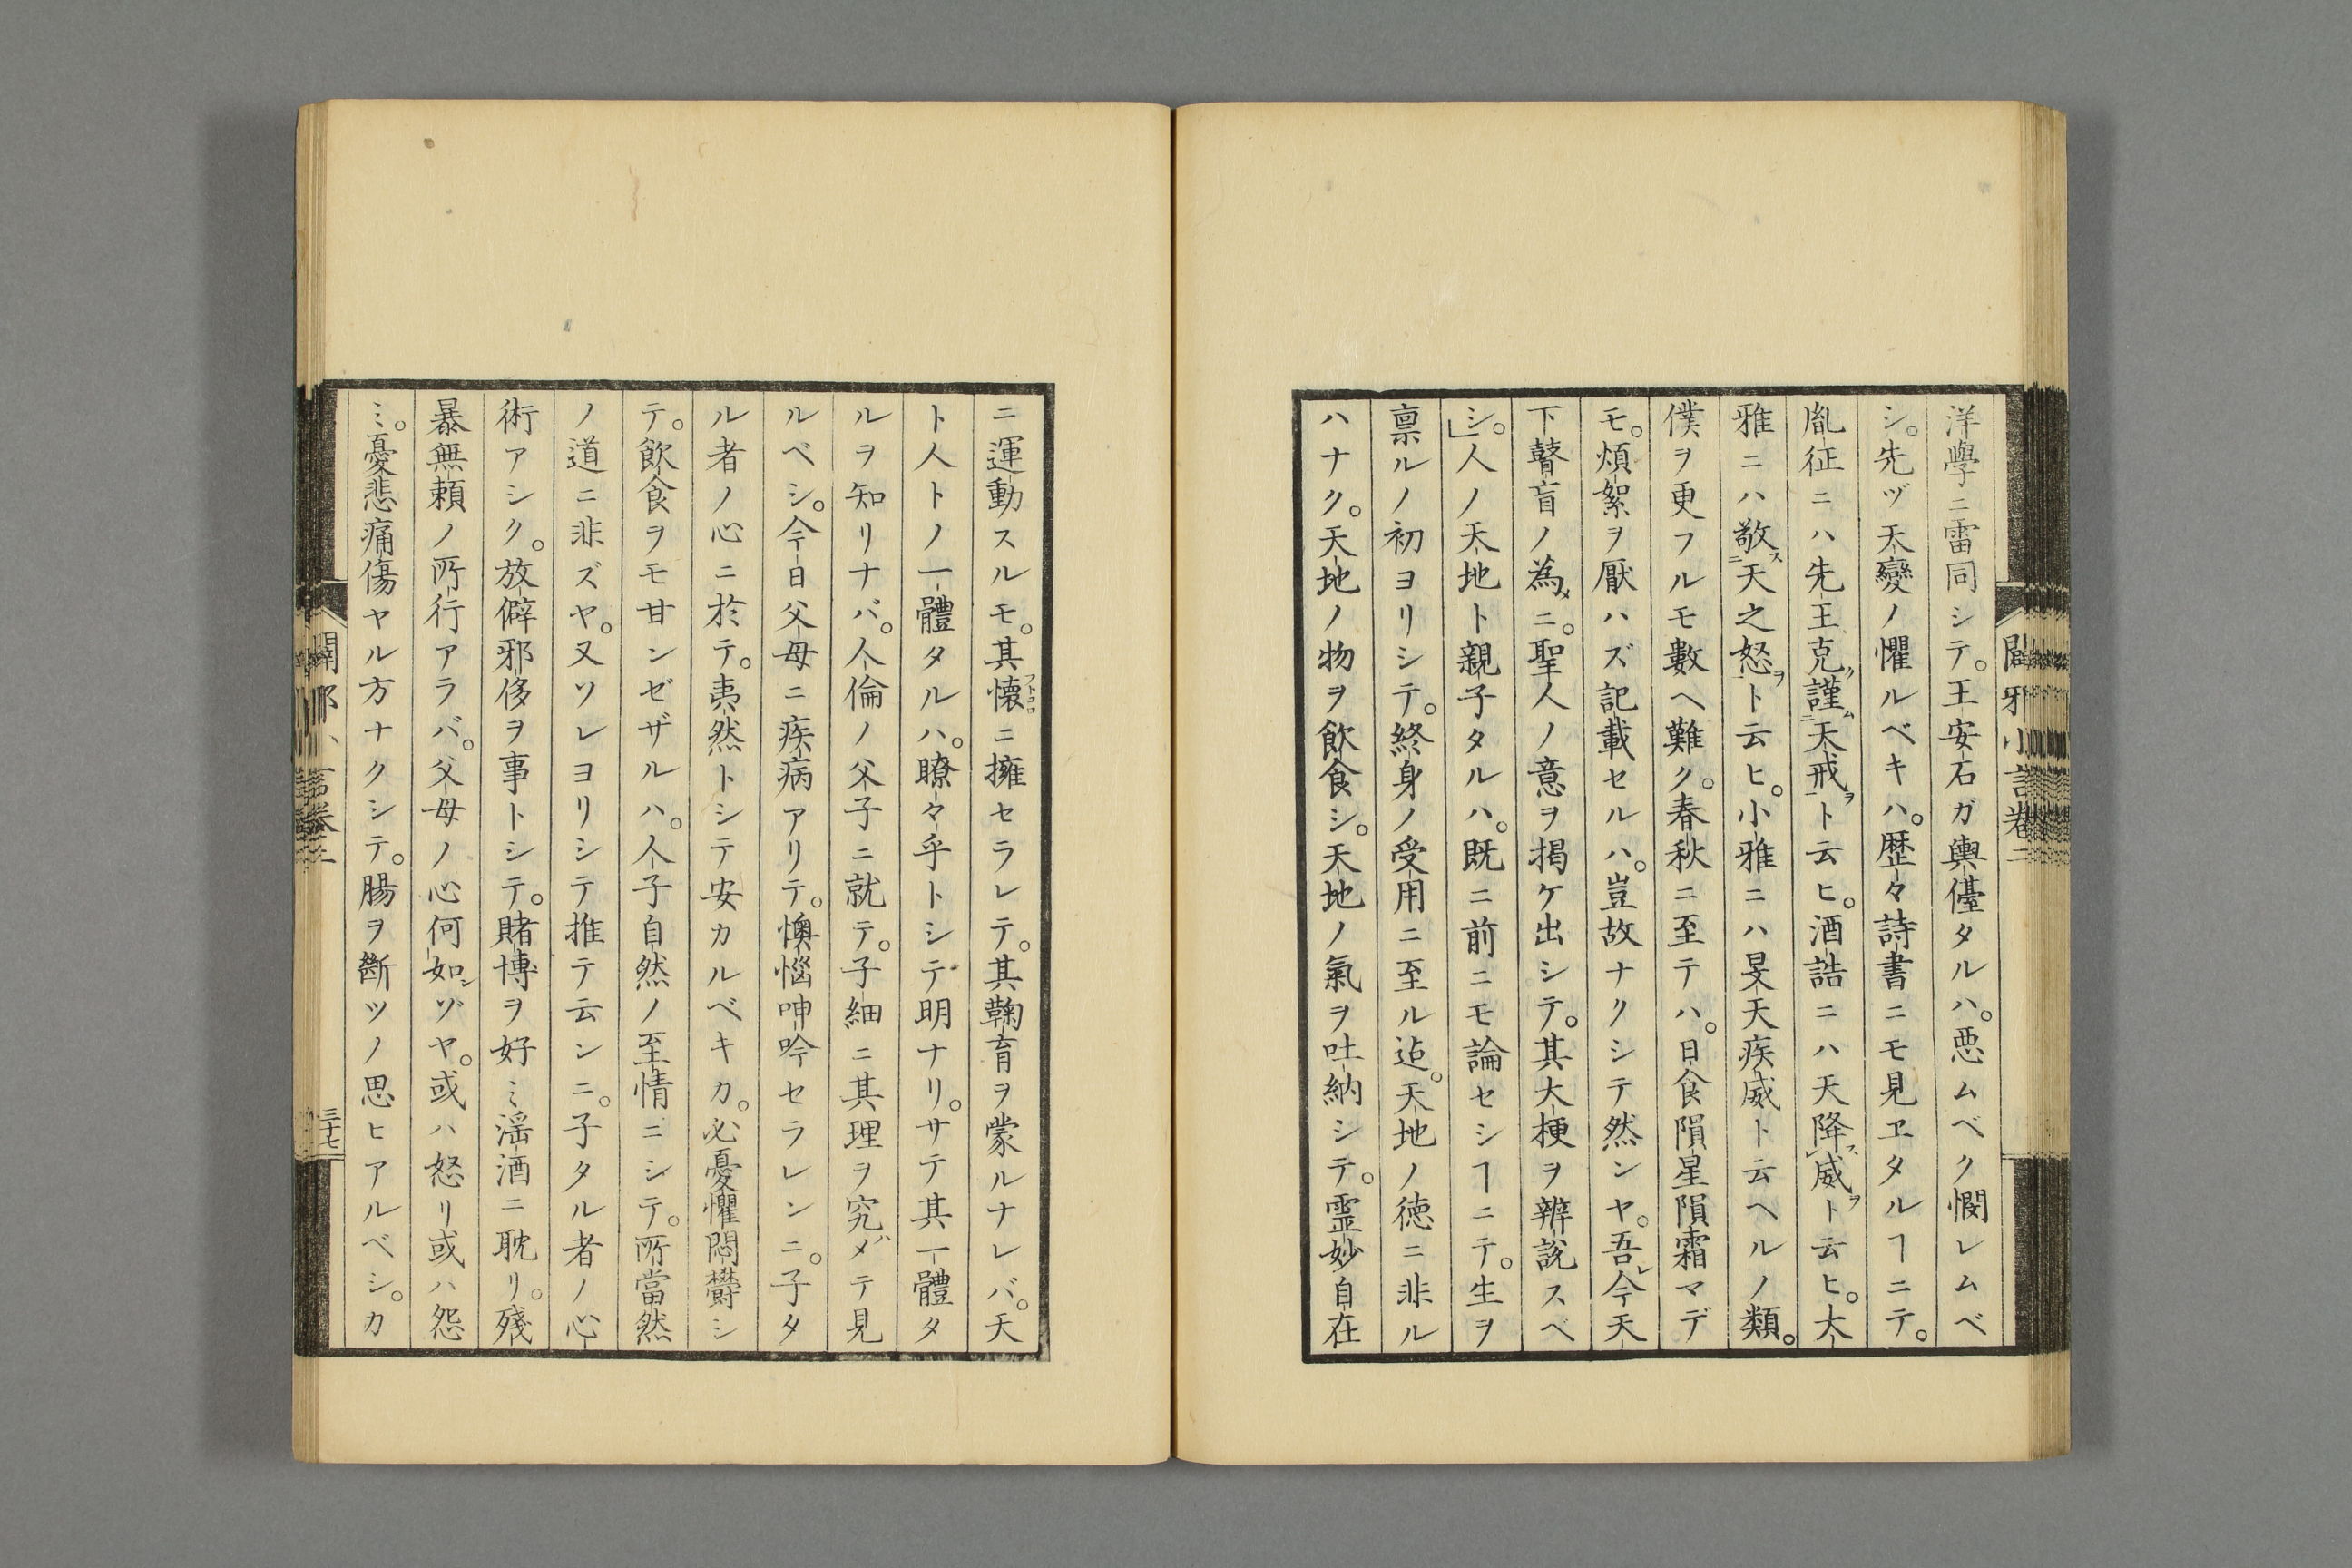 闢邪小言卷二
洋學ニ雷同シテ。王安石ガ輿儓タルハ。悪ムベク憫レムベ
シ。先ヅ天變ノ懼ルベキハ。歴々詩書ニモ見ヱタルヿニテ。
胤征ニハ先王克ク謹ム二天戒一ヲト云ヒ。酒誥ニハ天降スレ威ヲト云ヒ。大
雅ニハ敬ス二天之怒一ヲト云ヒ。小雅ニハ旻天疾威ト云ヘルノ類。
僕ヲ更フルモ數ヘ難ク。春秋ニ至テハ。日食隕星隕霜マデ
モ。煩絮ヲ厭ハズ記載セルハ。豈故ナクシテ然ンヤ。吾レ今天
下瞽盲ノ為メニ。聖人ノ意ヲ掲ケ出シテ。其大梗ヲ辨説スベ
シ。」人ノ天地ト親子タルハ。既ニ前ニモ論セシヿニテ。生ヲ
禀ルノ初ヨリシテ。終身ノ受用ニ至ル迠。天地ノ徳ニ非ル
ハナク。天地ノ物ヲ飲食シ。天地ノ氣ヲ吐納シテ。霊妙自在
ニ運動スルモ。其懐フトコロニ擁セラレテ。其鞠育ヲ蒙ルナレバ。天
ト人トノ一體タルハ。瞭々乎トシテ明ナリ。サテ其一體タ
ルヲ知リナバ。人倫ノ父子ニ就テ。子細ニ其理ヲ究ハメテ見
ルベシ。今日父母ニ疾病アリテ。懊惱呻吟セラレンニ。子タ
ル者ノ心ニ於テ。夷然トシテ安カルベキカ。必憂懼悶欝シ
テ。飲食ヲモ甘ンゼザルハ。人子自然ノ至情ニシテ。所當然
ノ道ニ非ズヤ。又ソレヨリシテ推テ云ンニ。子タル者ノ心
術アシク。放僻邪侈ヲ事トシテ。賭博ヲ好ミ淫酒ニ耽リ。殘
暴無頼ノ所行アラバ。父母ノ心何如シゾヤ。或ハ怒リ或ハ怨
ミ。憂悲痛傷ヤル方ナクシテ。腸ヲ斷ツノ思ヒアルベシ。カ
闢邪小言卷二
三十七